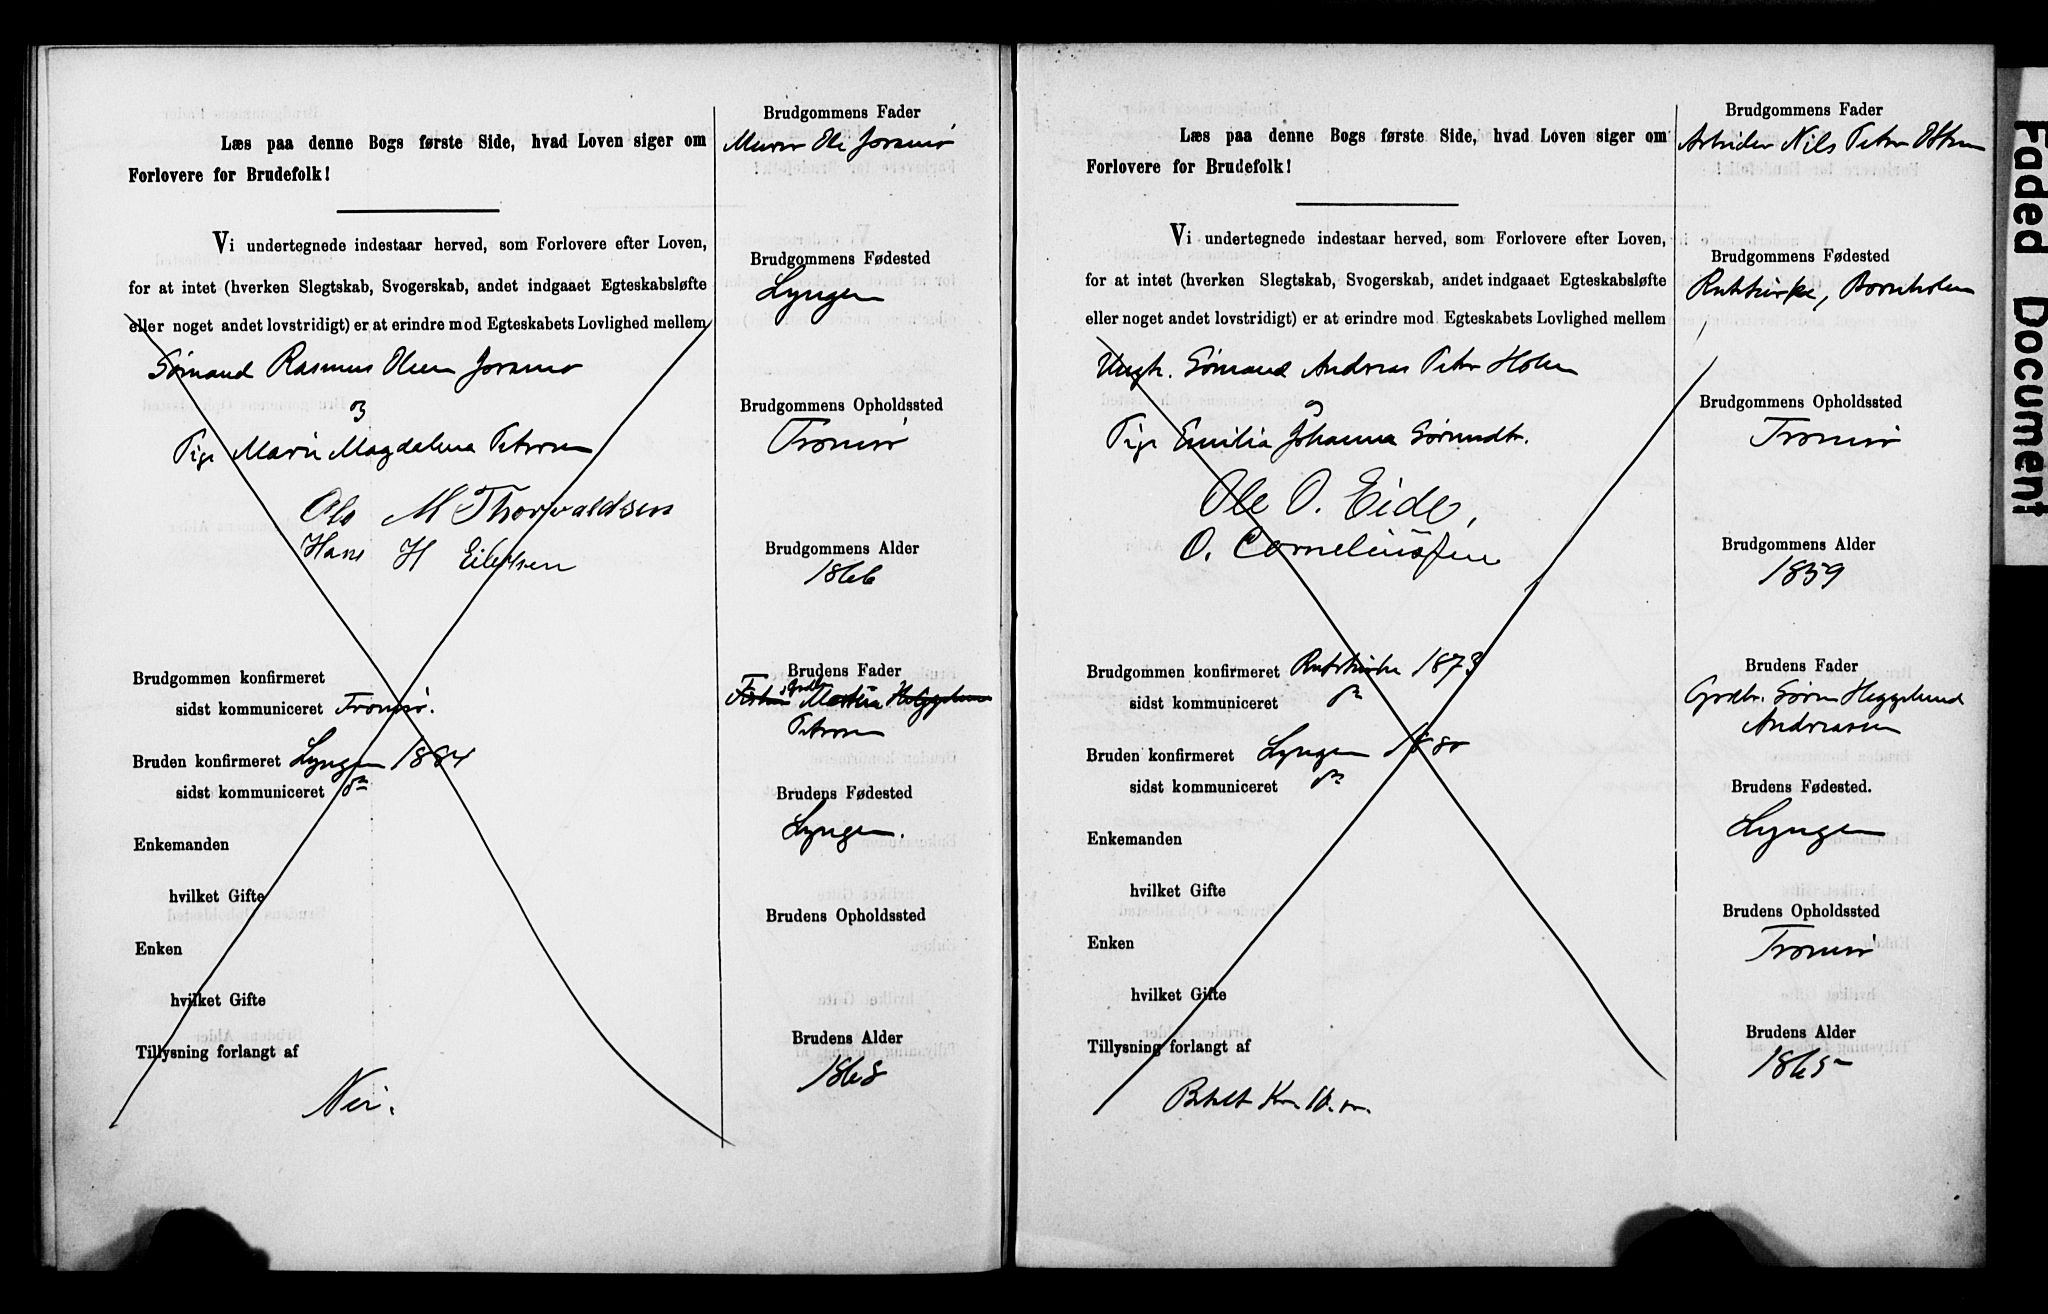 Læs paa denne Bogs første Side, hvad Loven siger om
Forlovere for Brudefolk!
Vi undertegnede indestaar herved, som Forlovere efter Loven,
for at intet (hverken Slegtskab, Svogerskab, andet indgaaet Egteskabsløfte
eller noget andet lovstridigt) er at erindre mod Egteskabets Lovlighed mellem
Sømand Rasmus Olsen
Pige Marie Magdalena Petersen
Ole M Thorvaldsen
Hans H Eilertsen
Brudgommen konfirmeret
sidst kommuniceret Tromsø.
Bruden konfirmeret Lyngen 1884
sidst kommuniceret do
Enkemanden
hvilket Gifte
Enken
hvilket Gifte
Tillysning forlangt af
Nei.
Brudgommens Fader
Murer Ole
Brudgommens Fødested
Lyngen
Brudgommens Opholdssted
Tromsø
Brudgommens Alder
1866
Brudens Fader
Petersen
Brudens Fødested
Lyngen.
Brudens Opholdssted
Brudens Alder
1868
Læs paa denne Bogs første Side, hvad Loven siger om
Forlovere for Brudefolk!
Vi undertegnede indestaar herved, som Forlovere efter Loven,
for at intet (hverken Slegtskab, Svogerskab, andet indgaaet Egteskabsløfte
eller noget andet lovstridigt) er at erindre mod Egteskabets Lovlighed mellem
Ungk. Sømand Andreas Peter Holm
Pige Emilia Johanna Sørensdtr.
Ole O. Eide,
O. Corneliussen
Brudgommen konfirmeret Rutskirke 1873
sidst kommuniceret do
Bruden konfirmeret Lyngen 1880
sidst kommuniceret do
Enkemanden
hvilket Gifte
Enken
hvilket Gifte
Tillysning forlangt af
Betalt Kr.
Brudgommens Fader
Arbeider Nils Peter
Brudgommens Fødested
Rutskirke, Bornholm
Brudgommens Opholdssted
Tromsø
Brudgommens Alder
1859
Brudens Fader
Grdbr. Søren Heggelund
Andreassen
Brudens Fødested.
Lyngen
Brudens Opholdssted
Tromsø
Brudens Alder
1865
Faded Document